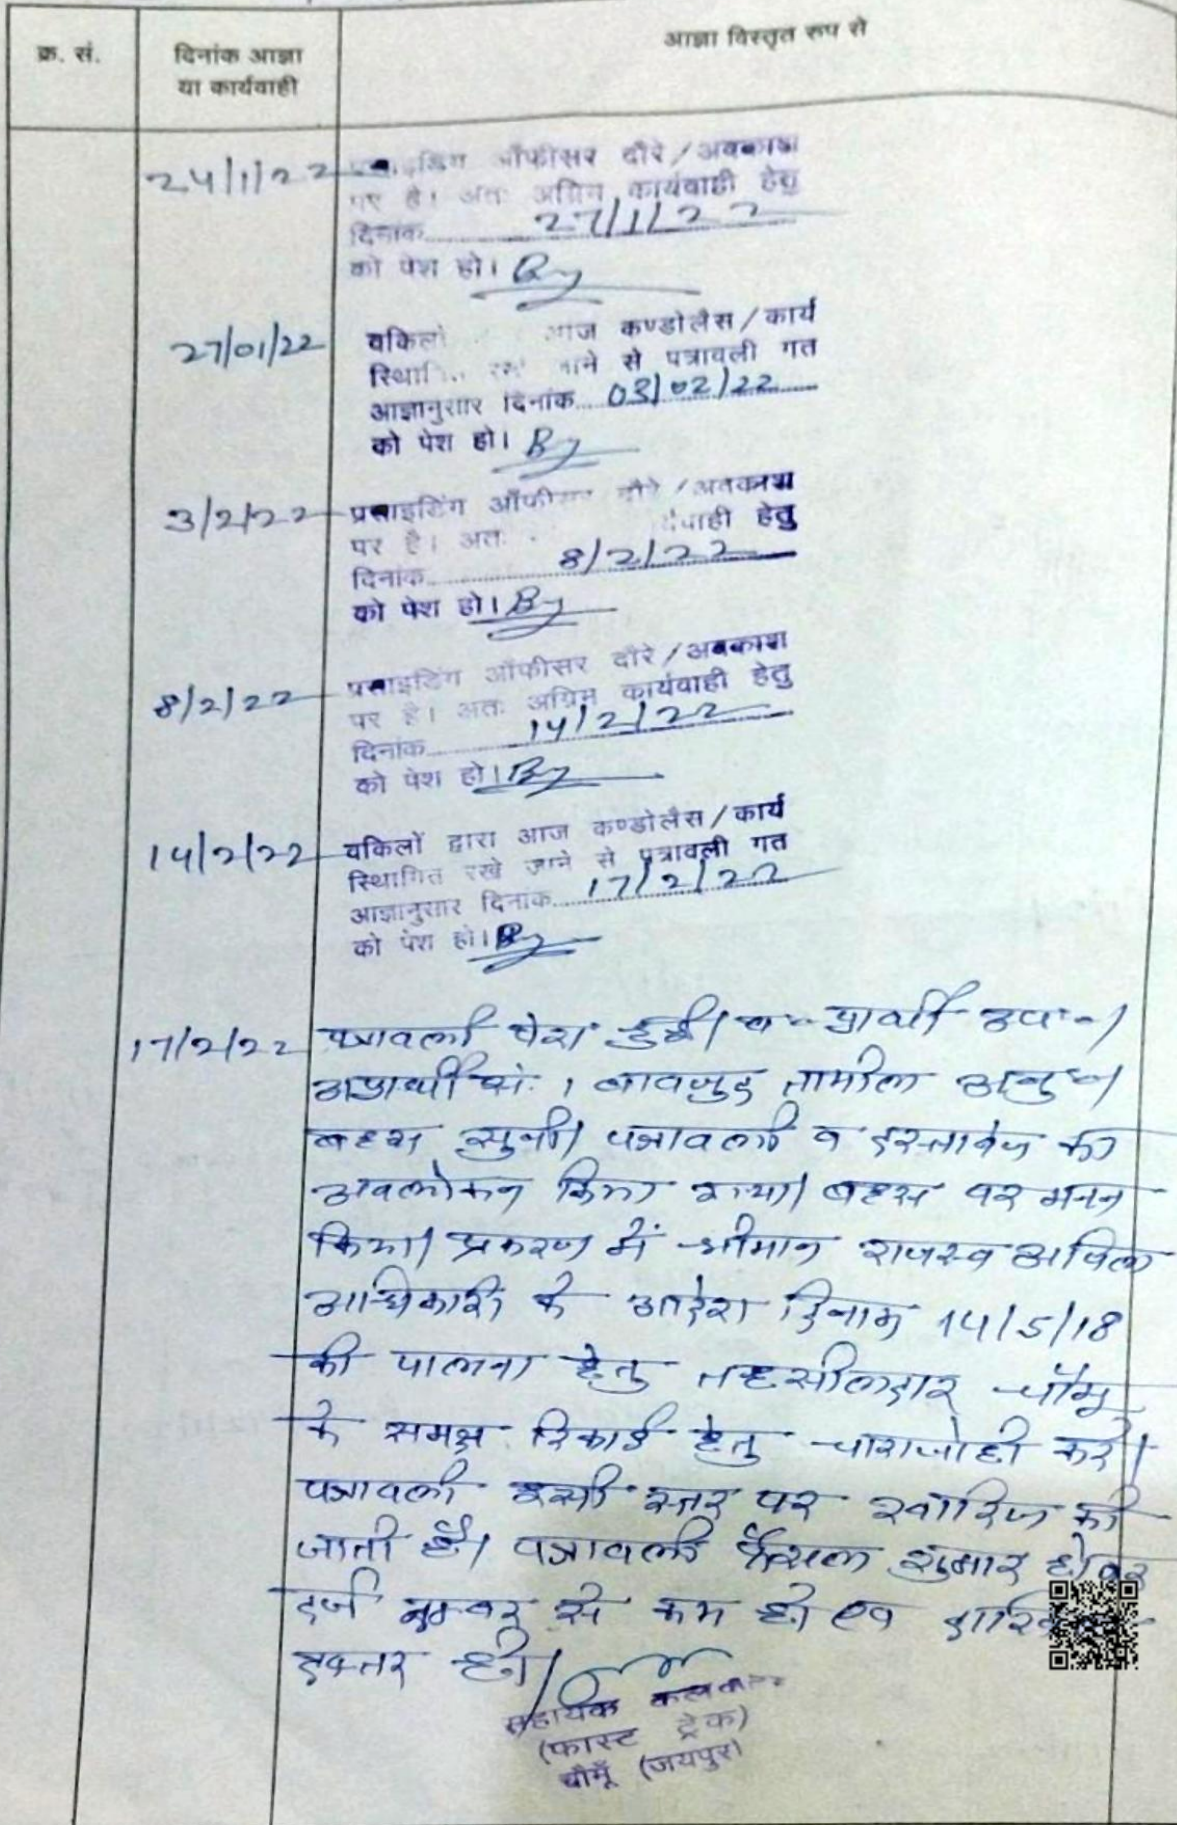 क्र. सं.
दिनांक आज्ञा
या कार्यवाही
आज्ञा विस्तृत रुप से
24/1/22 ऑफीसर दौरे/अवकाश
पर है। अतः अग्रिम कार्यवाही हेतु
दिनांक 27/1/22
को पेश हो।
27/01/22 वकिलो आज कण्डोलैस/कार्य
जाने से पत्रावली गत
आज्ञानुसार दिनांक 03/02/22
को पेश हो।
3/2/22 प्रसाइडिंग ऑफीसर दौरे/अवकाश
पर है। अतः हेतु
दिनांक 8/2/22
को पेश हो।
8/2/22 प्रसाइडिंग ऑफीसर दौरे/अवकाश
पर है। अतः अग्रिम कार्यवाही हेतु
दिनांक 14/2/22
को पेश हो।
14/2/22 वकिलों द्वारा आज कण्डोलैस/कार्य
स्थागित रखे जाने से पत्रावली गत
आज्ञानुसार दिनांक 17/2/22
को पेश हो।
17/2/22 पत्रावली पेश हुई। व० प्रार्थी उप०।
अप्रार्थी सं. 1 बावजुद तामील अनु०।
बहस सुनी। पत्रावली व दस्तावेज का
अवलोकन किया गया। बहस पर मनन
किया। प्रकरण में श्रीमान राजस्व अपिल
अधिकारी के आदेश दिनांक 14/5/18
की पालना हेतु तहसीलदार चौमू
के समक्ष रिकार्ड हेतु चाराजोही करे।
पत्रावली इसी स्तर पर खारिज की
जाती है। पत्रावली फैसल शुमार होकर
दर्ज नम्बर से कम हो एवं
दफ्तर हो।
सहायक कलक्टर
(फास्ट ट्रेक)
चौमूँ (जयपुर)